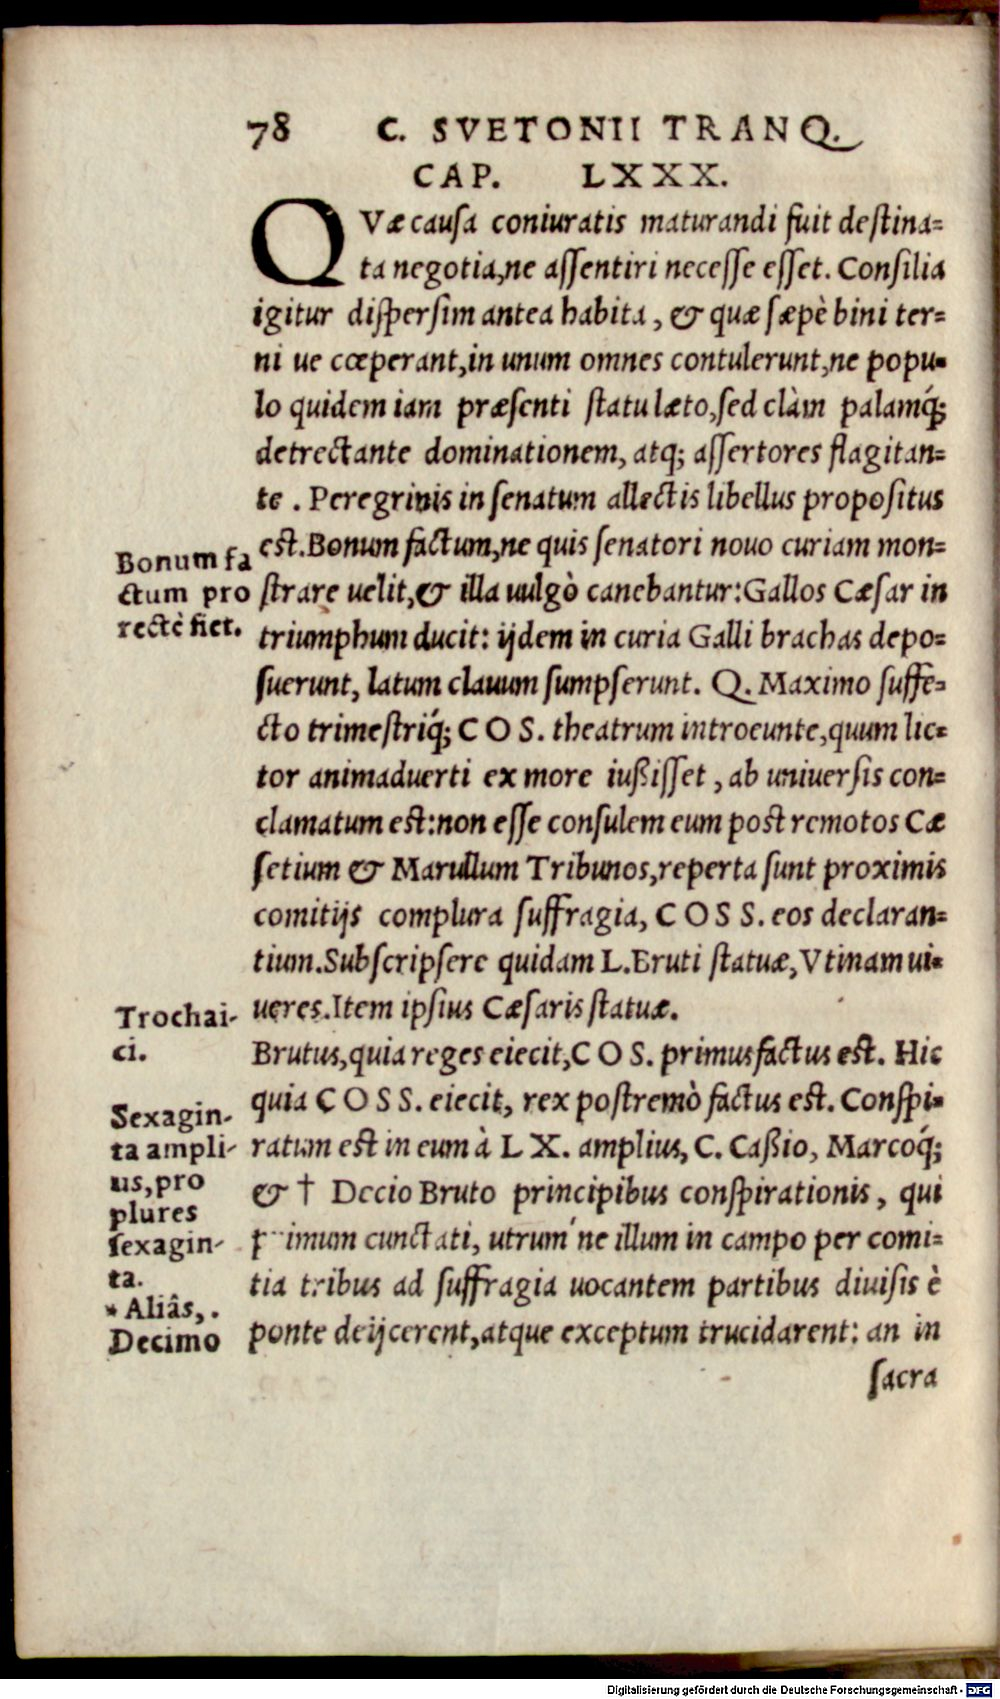 78 C. SVETONII TRANQ.
CAP. LXXX.
QVæ causa coniuratis maturandi fuit destina=
ta negotia, ne assentiri necesse esset. Consilia
igitur dispersim antea habita, & quæ sæpè bini ter=
ni ue cœperant, in unum omnes contulerunt, ne popu=
lo quidem iam præsenti statu læto, sed clàm palamq́;
detrectante dominationem, atq; assertores flagitan=
te. Peregrinis in senatum allectis libellus propositus
est. Bonum factum, ne quis senatori nouo curiam mon=
strare uelit, & illa uulgò canebantur: Gallos Cæsar in
triumphum ducit: ijdem in curia Galli brachas depo=
suerunt, latum clauum sumpserunt. Q. Maximo suffe=
cto trimestriq́; COS. theatrum introeunte, quum lic=
tor animaduerti ex more iußisset, ab uniuersis con=
clamatum est: non esse consulem eum post remotos Cæ
setium & Marullum Tribunos, reperta sunt proximis
comitijs complura suffragia, COSS. eos declaran=
tium. Subscripsere quidam L. Bruti statuæ, Vtinam ui=
ueres. Item ipsius Cæsaris statuæ.
Brutus, quia reges eiecit, COS. primus factus est. Hic
quia COSS. eiecit, rex postremò factus est. Conspi=
ratum est in eum à LX. amplius, C. Caßio, Marcoq́;
& † Decio Bruto principibus conspirationis, qui
primum cunctati, utrum ne illum in campo per comi=
tia tribus ad suffragia uocantem partibus diuisis è
ponte deijcerent, atque exceptum trucidarent: an in
sacra
Bonum fa
ctum pro
rectè fiet.
Trochai-
ci.
Sexagin-
ta ampli-
us, pro
plures
sexagin-
ta.
* Aliâs, .
Decimo
Digitalisierung gefördert durch die Deutsche Forschungsgemeinschaft - DFG